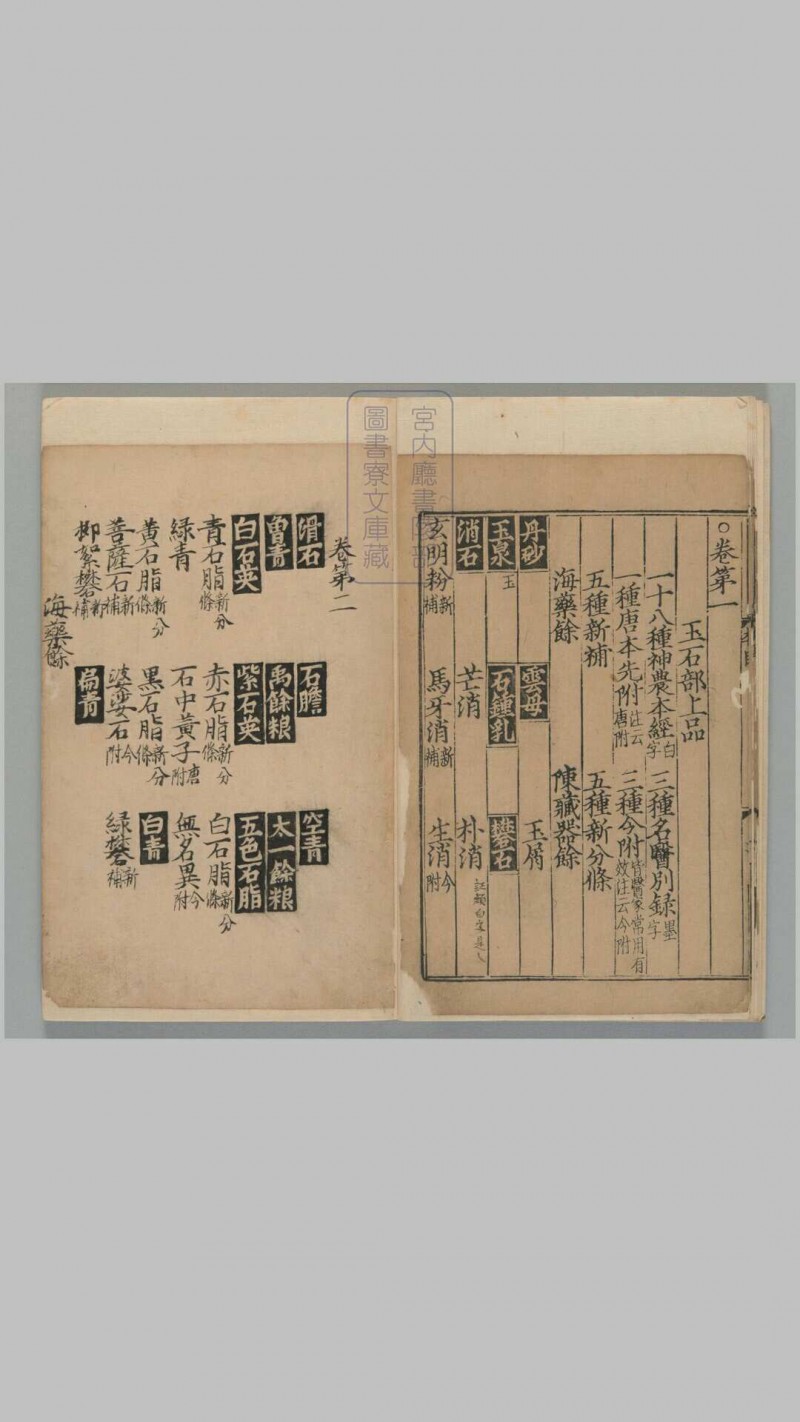 ○卷第一
玉石部上品
一十八種神農本經白字 三種名醫別録墨字
一種唐本先附注云唐附 三種今附皆醫家常用有效注云今附
五種新補 五種新分條
海藥餘 陳藏器餘
丹砂 雲母 玉屑
玉泉玉 石鍾乳 礬石
消石 芒消 朴消
玄明粉新補 馬牙消新補 生消今附
卷第二
滑石 石膽 空青
曽青 禹餘粮 太一餘粮
白石英 紫石英 五色石脂
青石脂新分條 赤石脂新分條 白石脂新分條
緑青 石中黃子唐附 無名異今附
黃石脂新分條 黑石脂新分條 白青
菩薩石新補 婆娑石今附 緑礬新補
柳絮礬新補 扁青
海藥餘
宮内廳書
圖書寮文庫藏